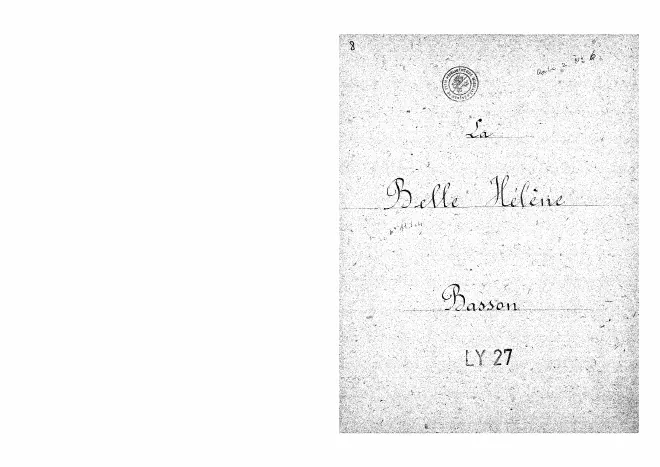 8
La
Belle Hélène
Basson
LY 27